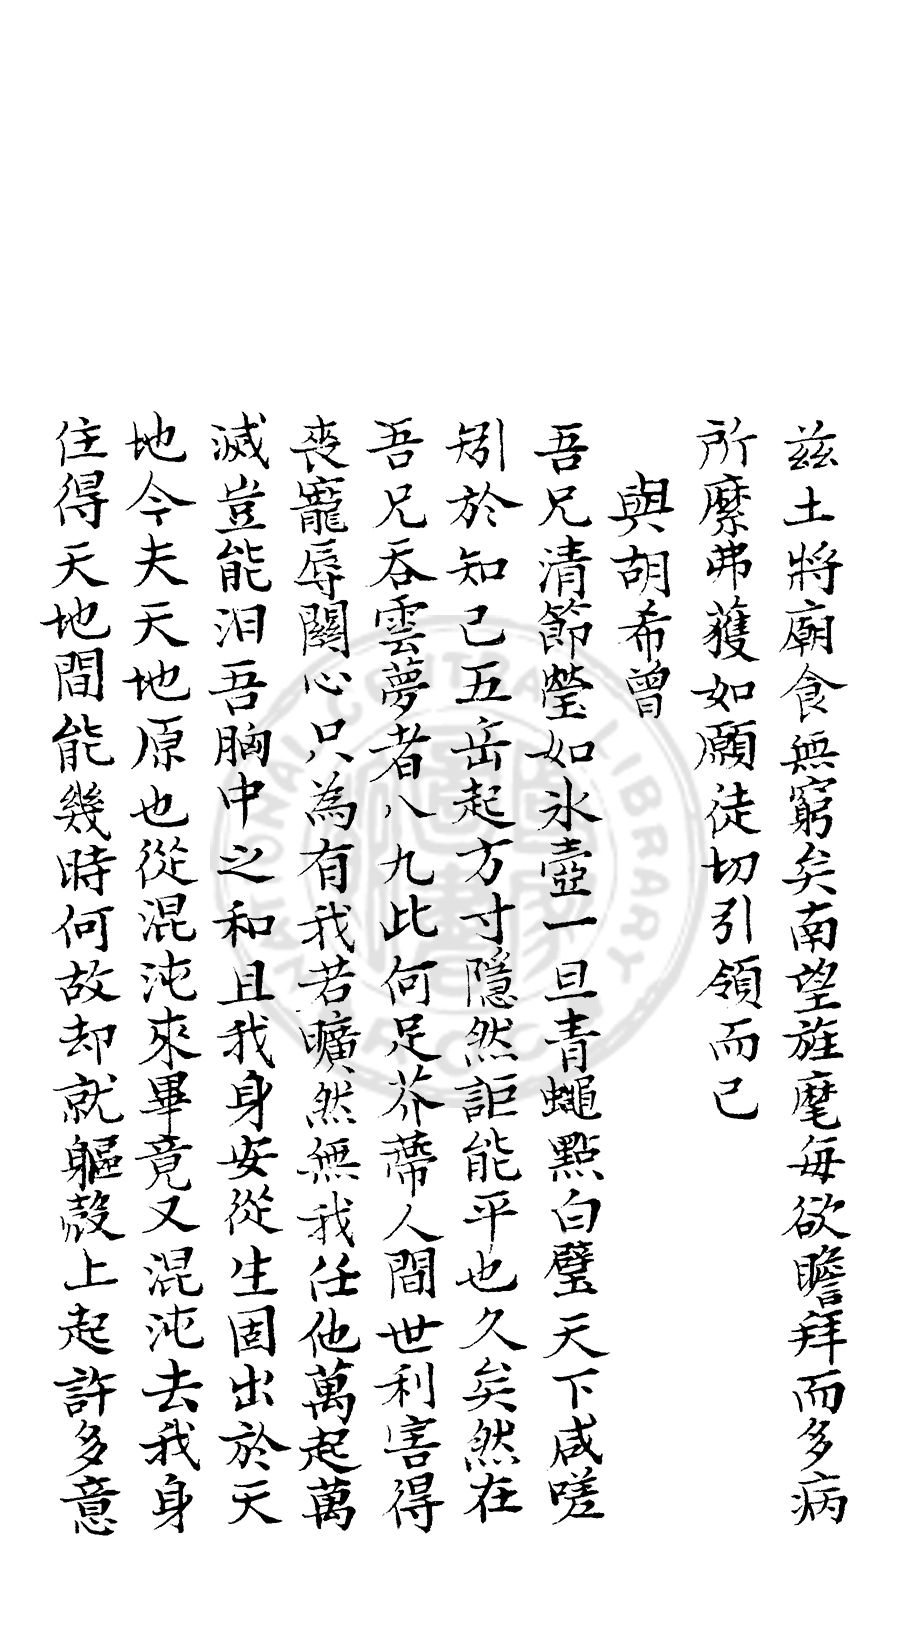 茲土將廟食無窮矣南望旌麾每欲瞻拜而多病
所縻弗獲如願徒切引領而已
與胡希曾
吾兄清節瑩如氷壺一旦青蠅點白璧天下咸嗟
矧於知己五岳起方寸隱然詎能平也久矣然在
吾兄吞雲夢者八九此何足芥蔕人間世利害得
喪寵辱關心只為有我若曠然無我任他萬起萬
滅豈能汨吾胸中之和且我身安從生固出於天
地今夫天地原也從混沌來畢竟又混沌去我身
住得天地間能幾時何故却就軀殼上起許多意
NATIONAL CENTRAL LIBRARY